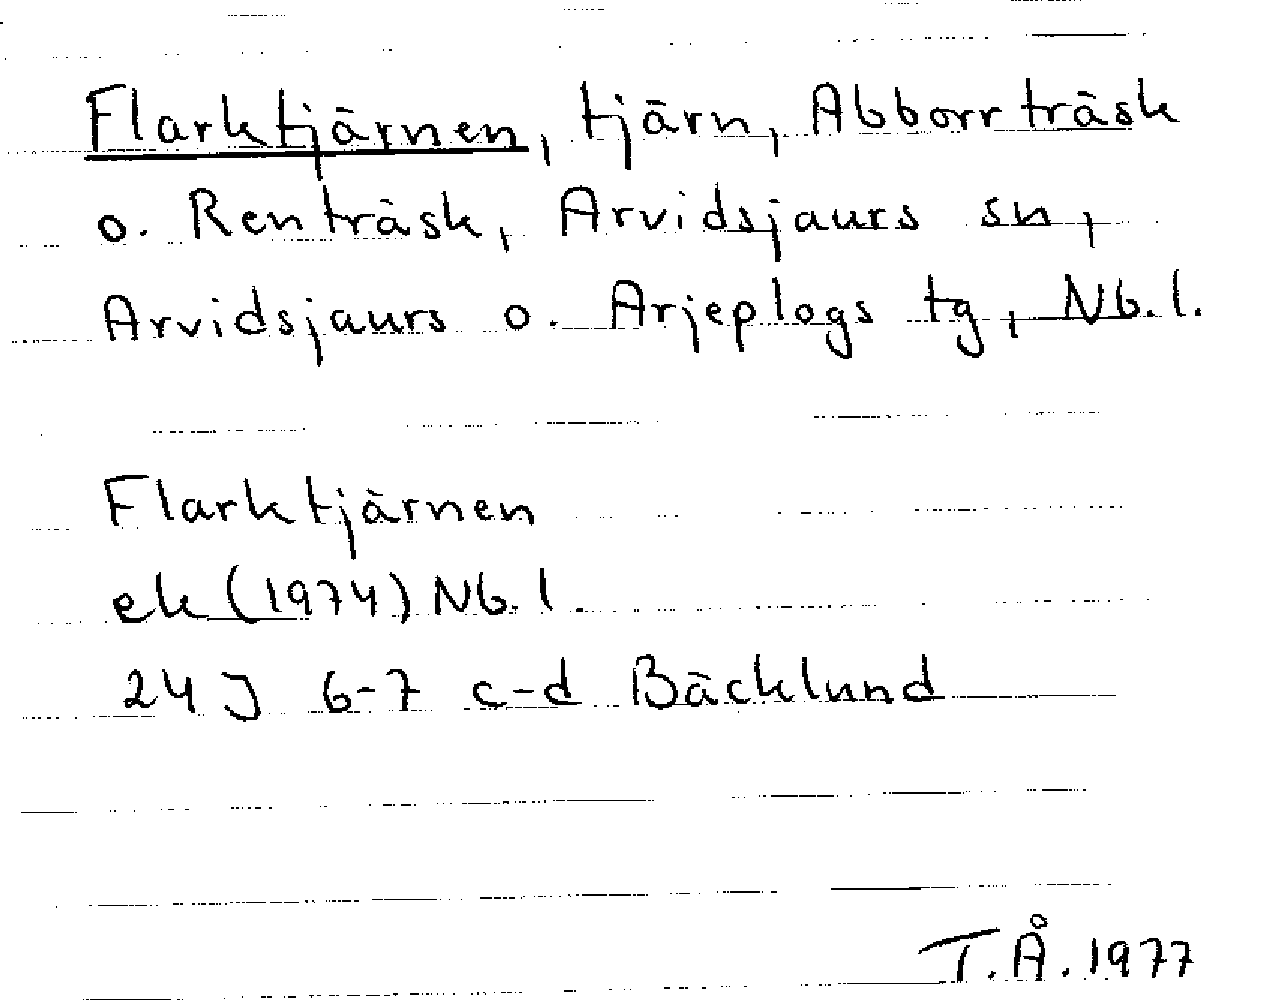 Flarktjärnen, tjärn, Abborrträsk
o. Renträsk, Arvidsjaurs sn,
Arvidsjaurs o. Arjeplogs tg, Nb. l.
Flarktjärnen
ek (1974) Nb. l.
24 J 6-7 c-d Bäcklund
T.Å. 1977